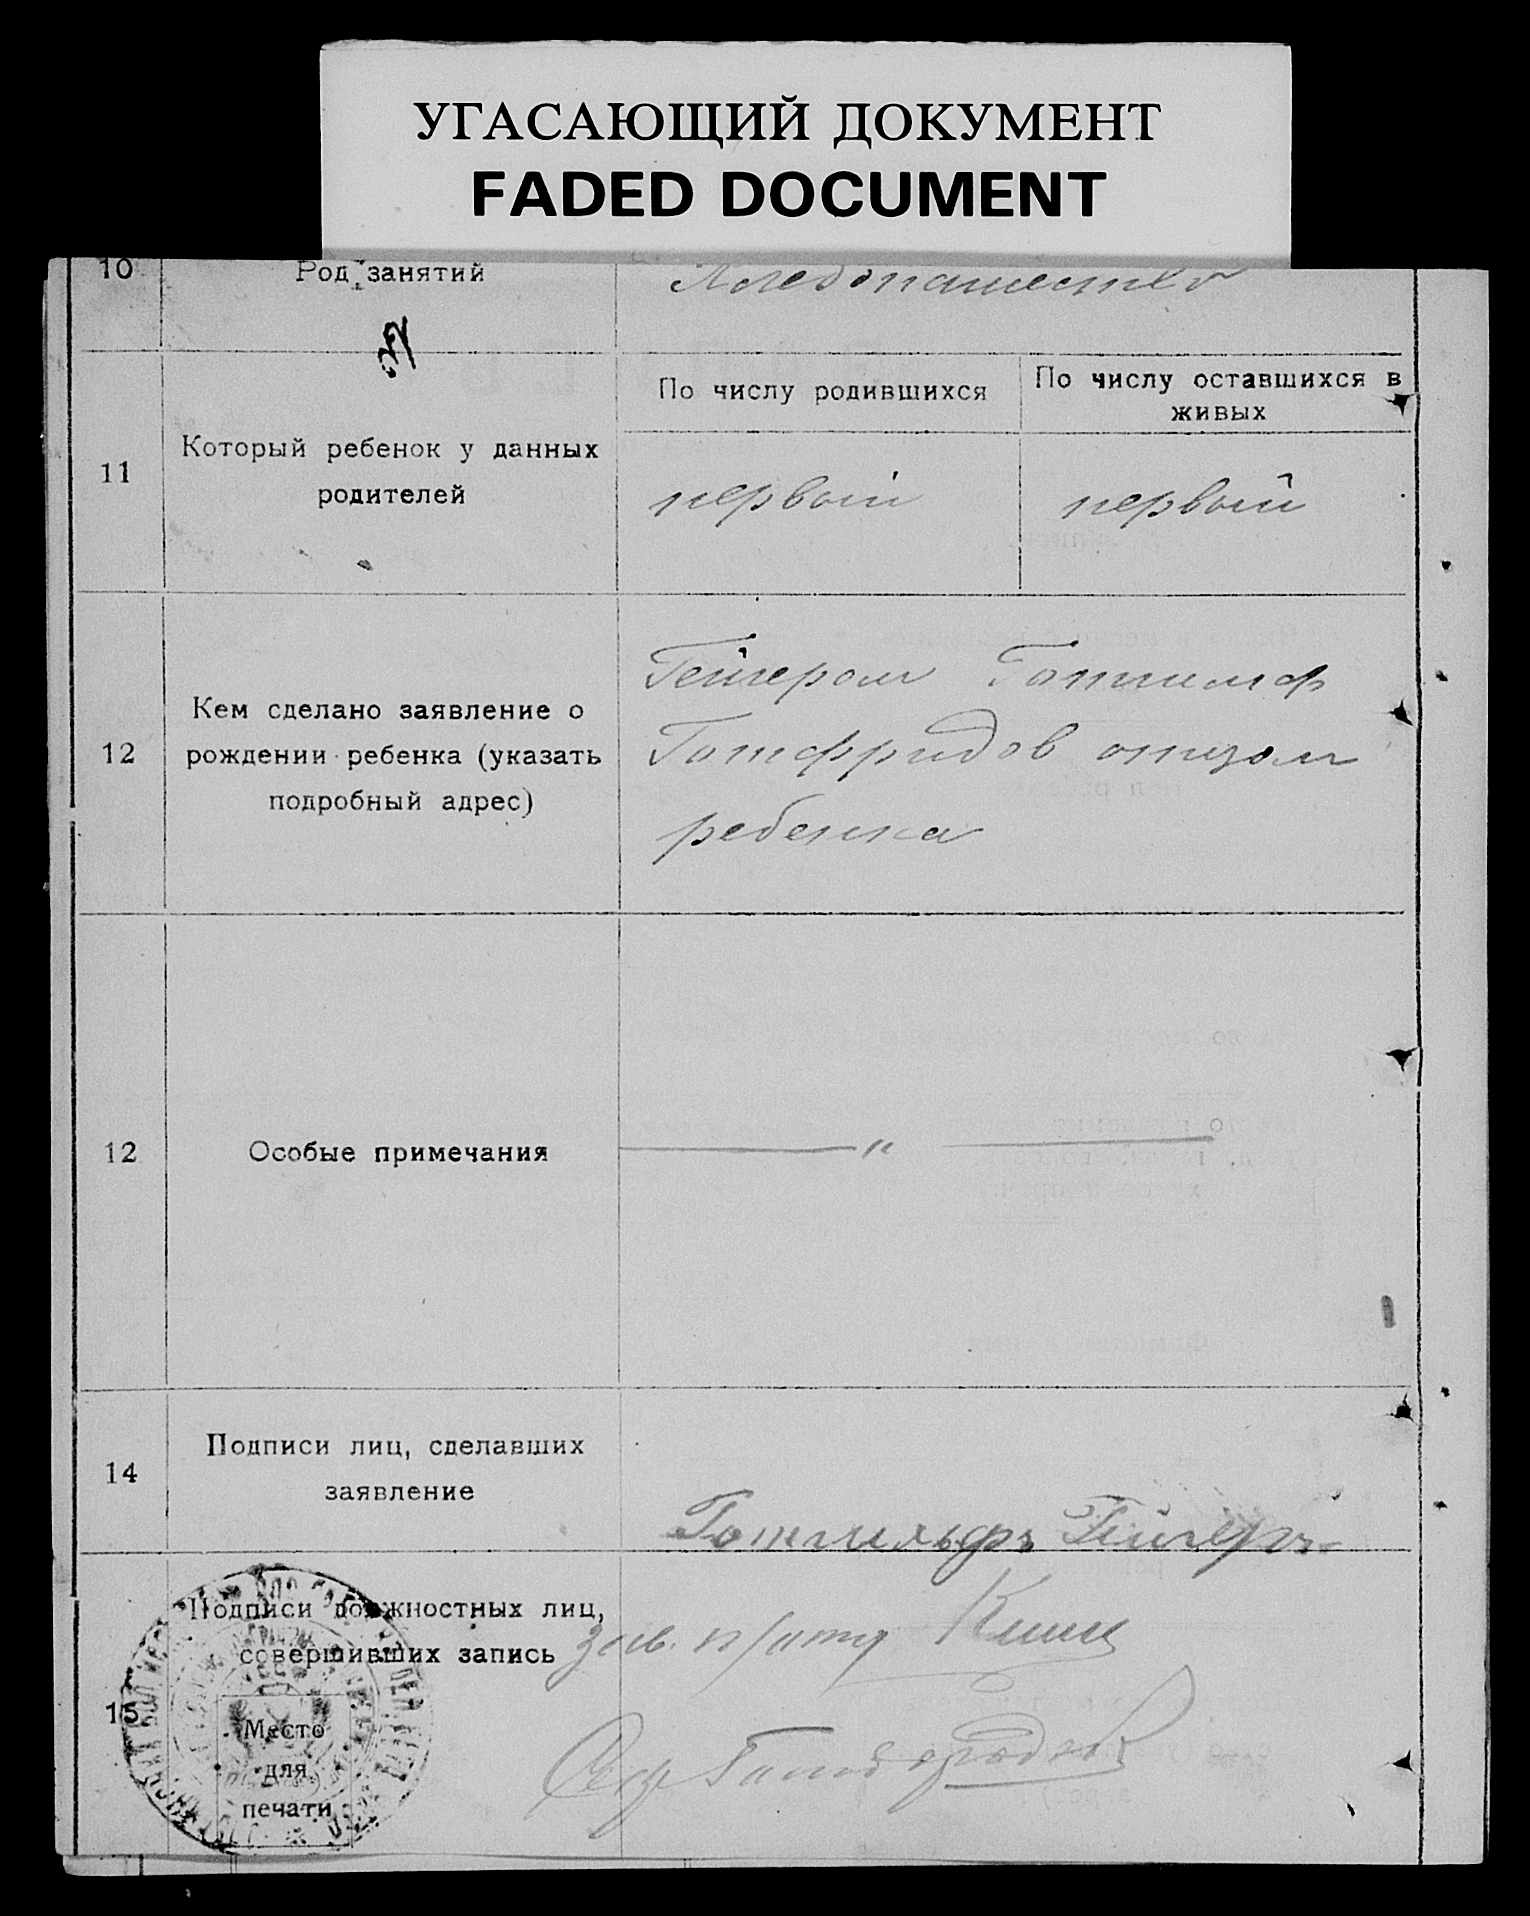 УГАСАЮЩИЙ ДОКУМЕНТ
FADED DOCUMENT
10
Род занятий
Хлебопашество
11
Который ребенок у данных
родителей
По числу родившихся
По числу оставшихся в
живых
первый
первый
12
Кем сделано заявление о
рождении ребенка (указать
подробный адрес)
Гейгером Готлиф
Готфридов отцом
ребенка
12
Особые примечания
"
14
Подписи лиц, сделавших
заявление
Готлильфъ Гейгеръ
15
Подписи должностных лиц,
совершивших запись
зав. п/отд
Место
для
печати